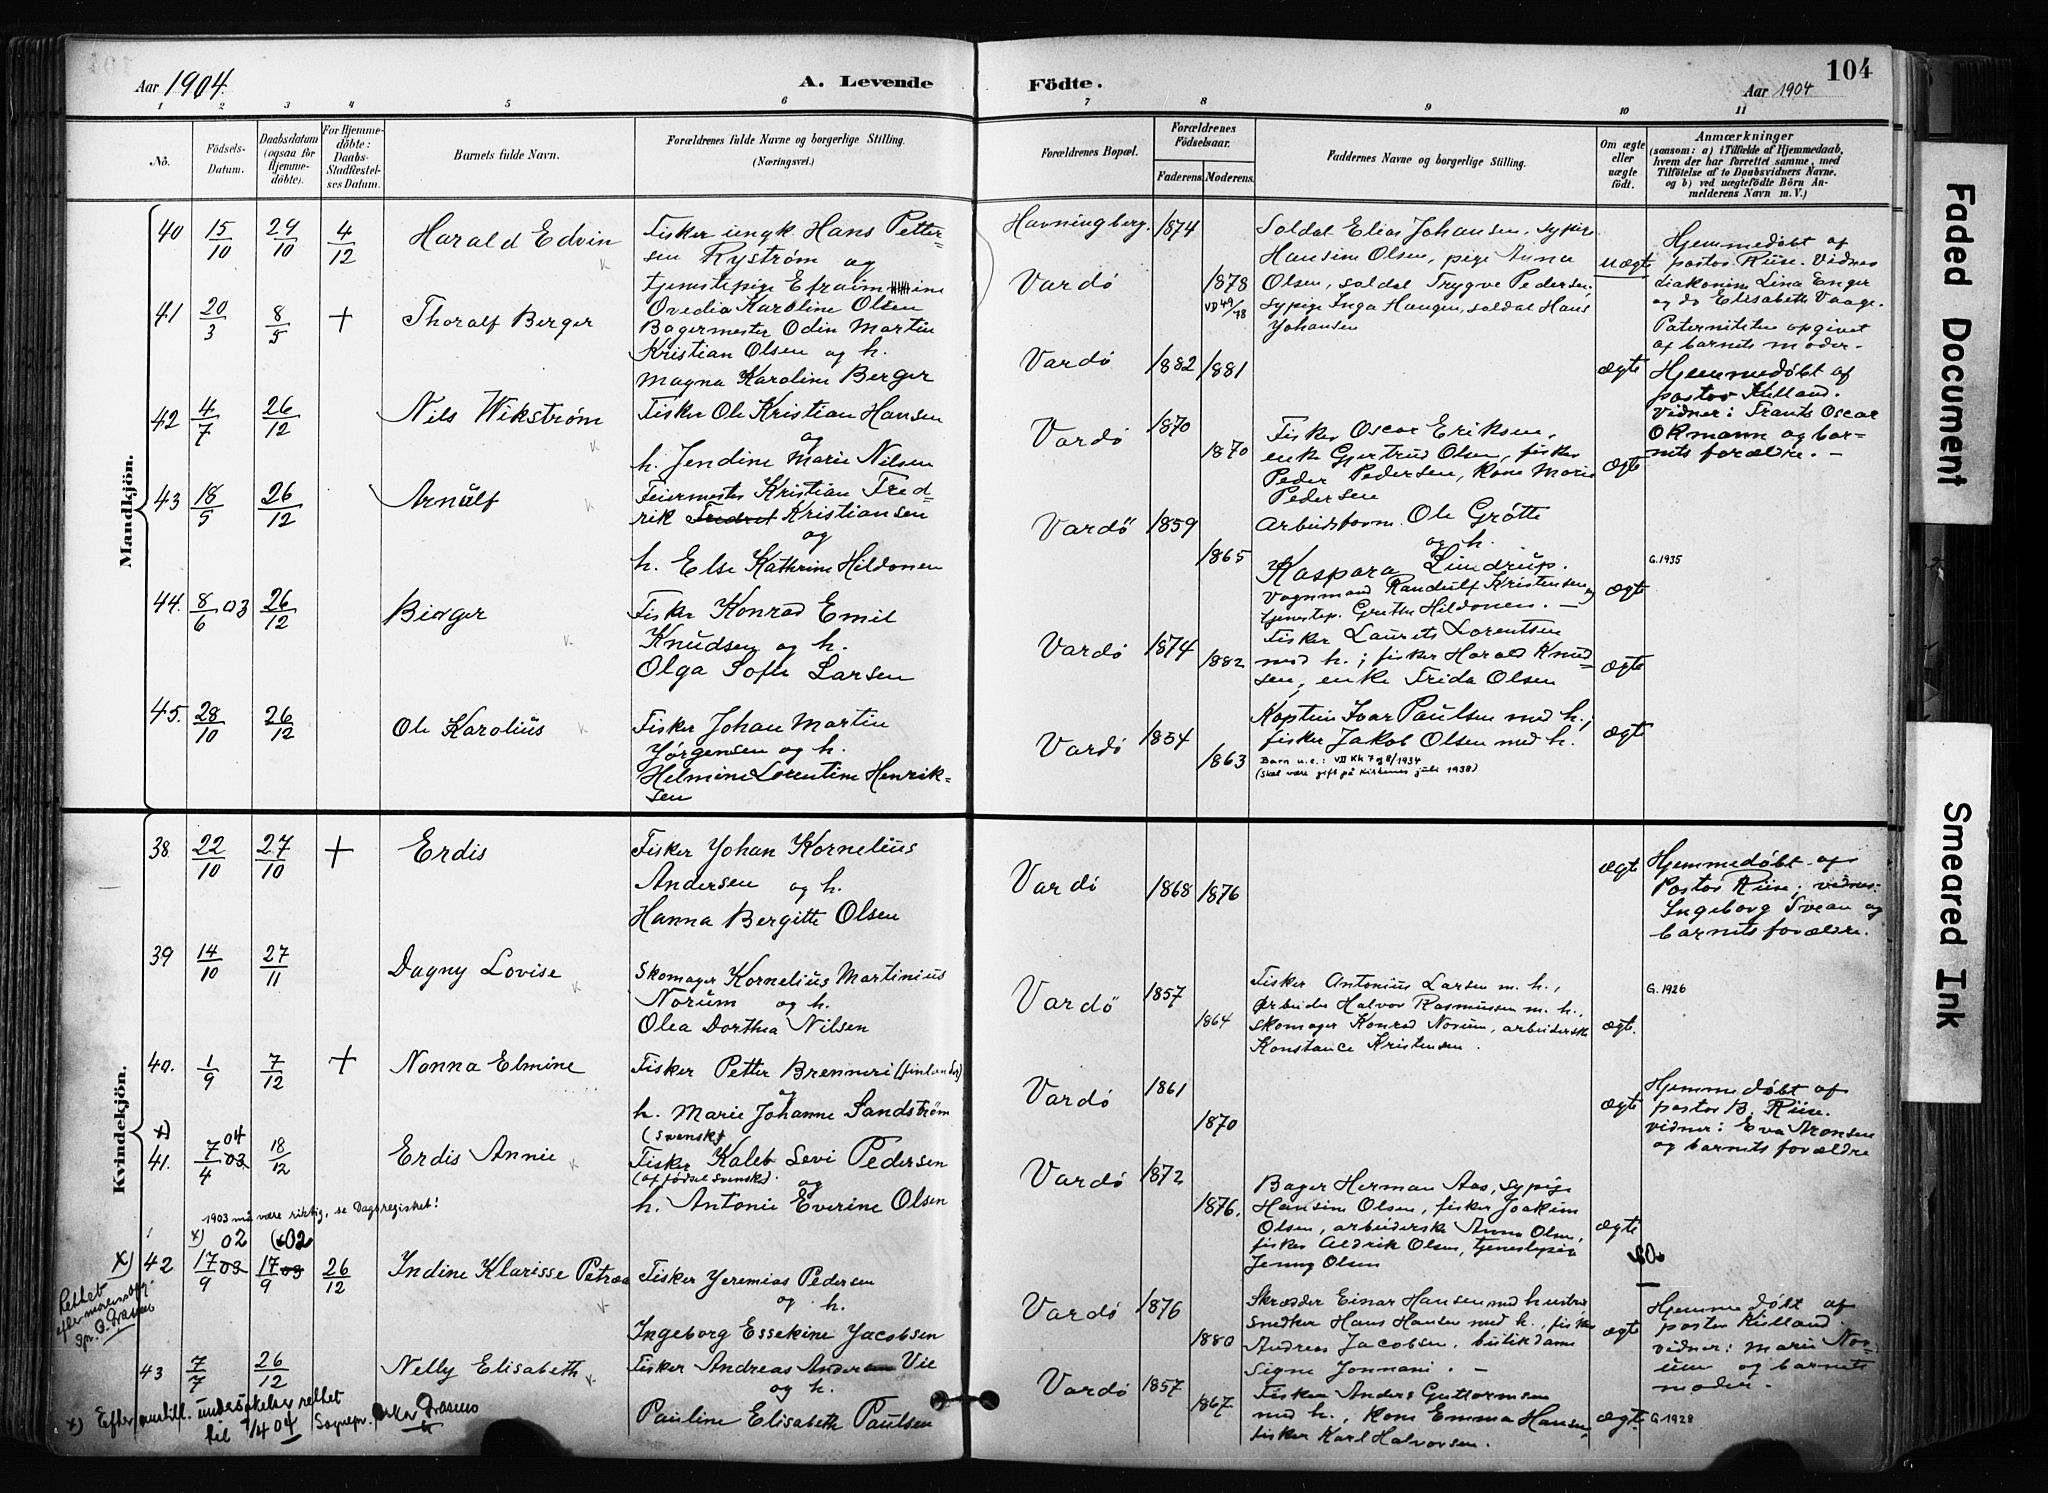 Aar 1904.
A. Levende
Födte.
Aar 1904
104
1 2 3 4 5 6 7 8 9 10 11
No.
Födsels-
Datum.
Daabsdatum
(ogsaa for
Hjemme-
döbte).
For Hjemme-
döbte:
Daabs-
Stadfæstel-
ses Datum.
Barnets fulde Navn.
Forældrenes fulde Navne og borgerlige Stilling.
(Næringsvei.)
Forældrenes Bopæl.
Forældrenes
Födselsaar.
Faderens.
Moderens.
Faddernes Navne og borgerlige Stilling.
Om ægte
eller
uægte
födt.
Anmærkninger
(saasom: a) i Tilfælde af Hjemmedaab,
hvem der har forrettet samme, med
Tilföielse af to Daabsvidners Navne.
og b) ved uægtefödte Börn An-
melderens Navn m. V.)
Mandkjön.
40 15/10 29/10 4/12 Harald Edvin
Fisker ungk Hans Petter-
sen Rystrøm og
tjenstepige Efraimine
Ovedia Karoline Olsen
Havningberg. 1874
Vardö 1878
VD 49/48
Soldat Elias Johansen, sypige
Hansine Olsen, pige Anna
Olsen, soldat Trygve Pedersen
sypige Inga Haugen, soldat Hans
Johansen
uægte
Hjemmedøbt af
pastor Riise. Vidner
diakonisse Lina Enger
og do Elisabeth Vaage.
Paterniteten opgivet
af barnets moder.
41 20/3 8/5 + Thoralf Berger
Bagermester Odin Martin
Kristian Olsen og h.
Magna Karoline Berger
Vardö 1882 1881
ægte
Hjemmedøbt af
pastor Kulland.
Vidner: Frants Oscar
Okmann og bar-
nets forældre. -
42 4/7 26/12 Nils Wikstrøm
Fisker Ole Kristian Hansen
og
h. Jendine Marie Nilsen
Vardö 1870
1870
Fisker Oscar Eriksen,
enke Gjertrud Olsen, fisker
Peder Pedersen, kone Marie
Pedersen
ægte
43 18/5 26/12 Arnülf
Feiermester Kristian Fred-
rik Kristiansen
og
h. Else Kathrine Hildonen
Vardö 1859
1865
Arbeidsform. Ole Grøtte
og h.
Kaspara Lundrup.
Vognmand Randulf Kristensen og
tjenestep. Grethe Hildonen. -
ægte
G. 1935
44. 8/6 03 26/12 Birger
Fisker Konrad Emil
Knudsen og h.
Olga Sofie Larsen
Vardö 1874
1882
Fisker Laurits Lorentsen
med h.; fisker Harald Knud-
sen, enke Frida Olsen
ægte
45. 28/10 26/12 Ole Karolius
Fisker Johan Martin
Jörgensen og h.
Helmine Lorentine Henrik-
sen
Vardö 1854
1863
Kaptein Ivar Paulsen med h,
fisker Jakob Olsen med h.
Barn u.e.: VD Kk 7 og 8/1934
(Skal være gift på Kirkenes juli 1938)
ægte
Kvindekjön.
38. 22/10 27/10 + Erdis
Fisker Johan Kornelius
Andersen og h.
Hanna Bergitte Olsen
Vardö 1868 1876
ægte
Hjemmedøbt af
Pastor Riise; vidner:
Ingeborg Svean og
barnets forældre.
39 14/10 27/11 Dagny Lovise
Skomager Kornelius Martinius
Norum og h.
Olea Dorthea Nilsen
Vardö 1857
1864
Fisker Antonius Larsen m. h.,
arbeider Halvor Rasmussen m. h.,
skomager Konrad Norum, arbeiderske
Konstance Kristensen.
ægte.
G. 1926
40. 1/9 7/12 + Nonna Elmine
Fisker Petter Brenneri (finlender)
og
h. Marie Johanne Sandström
(svensk)
Vardö 1861
1870
ægte
Hjemmedøbt af
pastor B. Riise.
vidner: Eva Aronsen
og barnets forældre
x)
41. 7/4 04 03 18/12 Erdis Annie
Fisker Kaleb Levi Pedersen
(af fødsel svensk) og
h. Antonie Everine Olsen
Vardö 1872
1876.
Bager Herman Aas, sypige
Hansine Olsen, fisker Joakim
Olsen, arbeidersk Anna Olsen,
fisker Aldrik Olsen, tjenestepige
Jenny Olsen
ægte
1903 må være riktig, se Dagsregistret!
x) 02 02
x) 42 17/9 03 17/9 03 26/12 Indine Klarisse Petrea
Fisker Jeremias Pedersen
og h.
Ingeborg Essekine Jacobsen
Vardö 1876
1880
Skrædder Einar Hansen med hustru
snedker Hans Hansen med h., fisker
Andreas Jacobsen, butikdame
Signe Jonmani. -
ægte
Hjemmedøbt af
pastor Kulland.
vidner: Marie Nor-
um og barnets
moder.
Rettet
efter morens opg.
43 7/7 26/12 Nelly Elisabeth
Fisker Andreas Vie
og h.
Pauline Elisabeth Paulsen
Vardö 1857
1867
Fisker Anders Guttormsen
med h., kone Emma Hansen,
fisker Karl Halvorsen.
ægte.
G. 1928
x) Efter undersøkelse rettet
til 7/4 04 Sognepr.
Faded Document
Smeared Ink